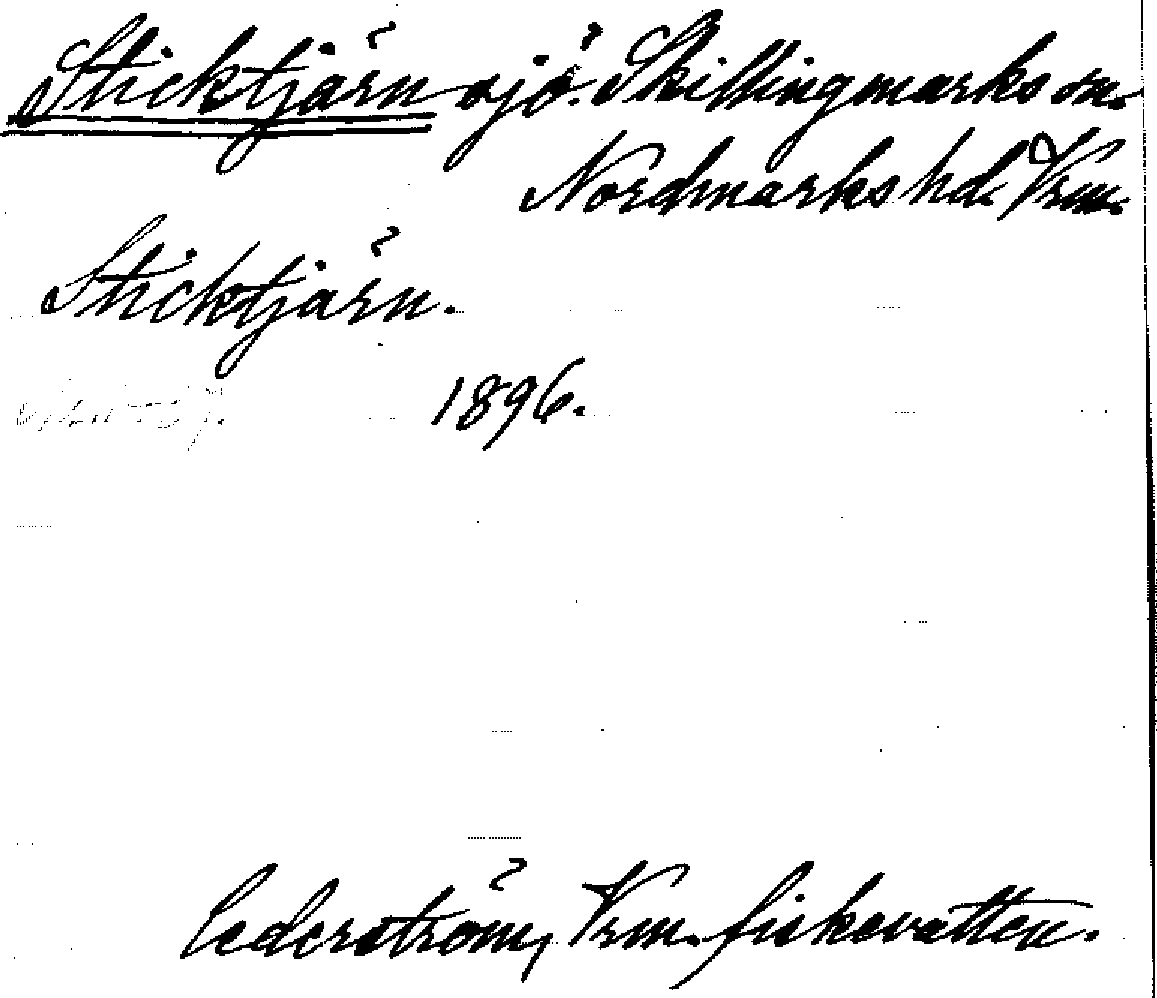 Sticktjärn sjö. Skillingmarks sn.
Nordmarks hd. Vrm.
Sticktjärn.
1896.
Cederström, Vrm. fiskevatten.